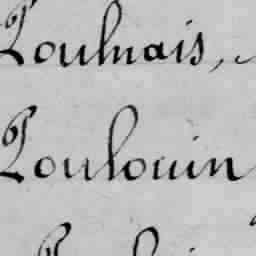 Poulnais,
Poulouin